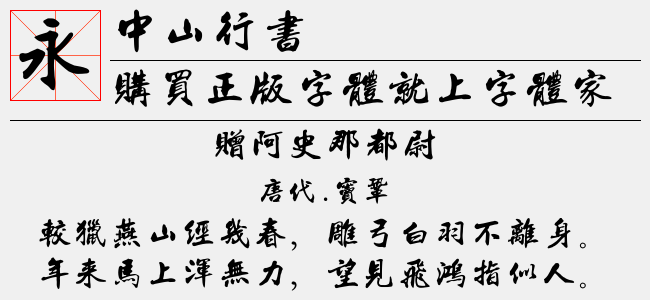 永
中山行書
購買正版字體就上字體家
贈阿史那都尉
唐代.竇鞏
較獵燕山經幾春，雕弓白羽不離身。
年来馬上渾無力，望見飛鴻指似人。